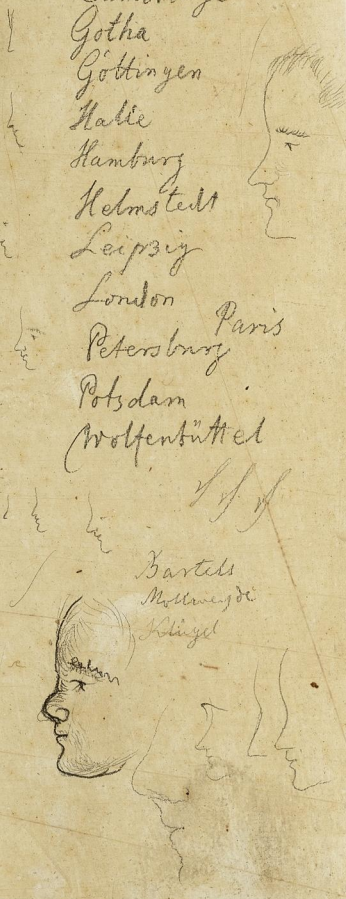 Gotha
Göttingen
Halle
Hamburg
Helmstedt
Leipzig
London
Paris
Petersburg
Potsdam
Wolfenbüttel
Bartels
Mollweyde
Klügel